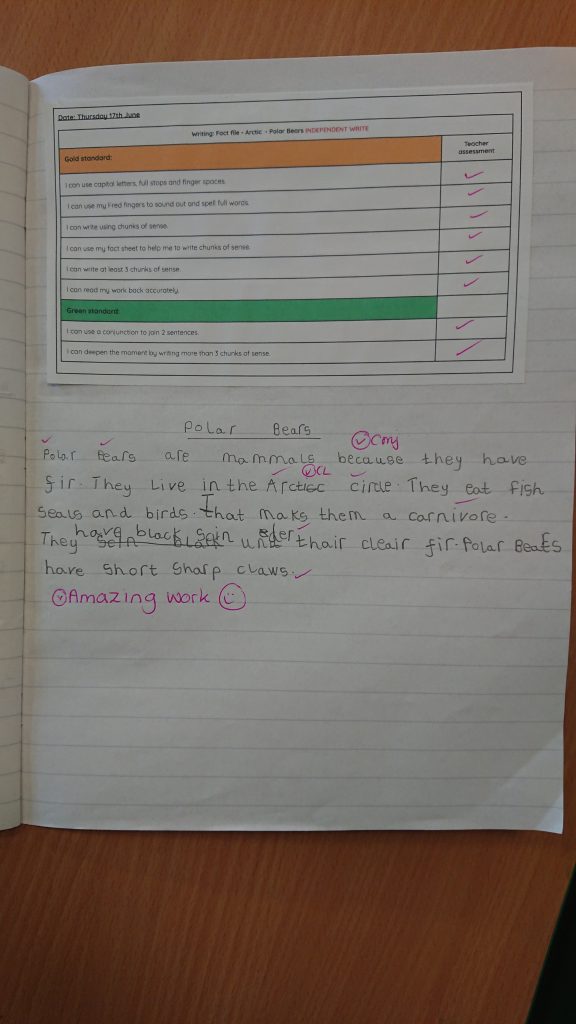 Date: Thursday 17th June
Writing: Fact file - Arctic - Polar Bears INDEPENDENT WRITE
Gold standard: Teacher assessment
I can use capital letters, full stops and finger spaces.
I can use my Fred fingers to sound out and spell full words.
I can write using chunks of sense.
I can use my fact sheet to help me to write chunks of sense.
I can write at least 3 chunks of sense.
I can read my work back accurately.
Green standard:
I can use a conjunction to join 2 sentences.
I can deepen the moment by writing more than 3 chunks of sense.
Polar Bears
Conj
Polar Bears are mammals because they have
CL
fir. They Live in the Arctic circle. They eat fish
seals and birds. That maks them a carnivore.
have black scin
They under thair cleair fir. Polar Bears
have short sharp claws.
Amazing work